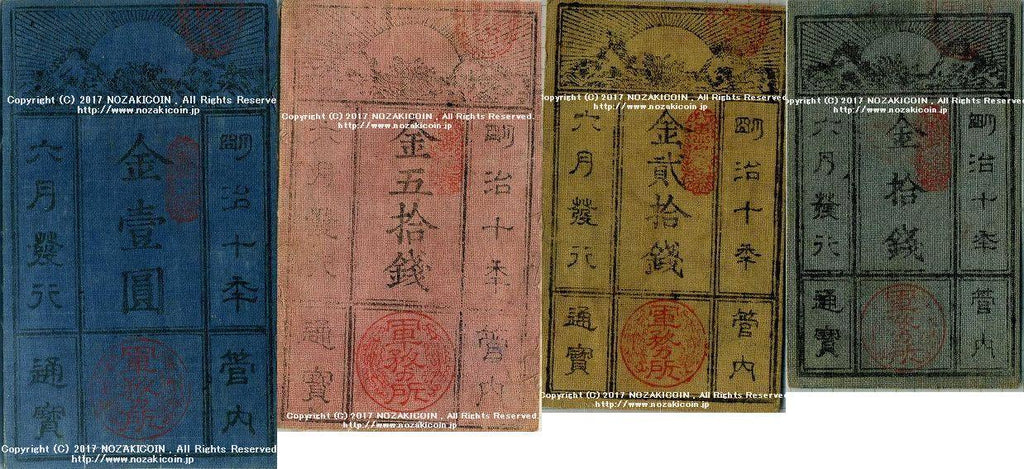 Copyright (C) 2017 NOZAKICOIN , All Rights Reserve
http://www.nozakicoin.jp
明治十年
管内
金壹圓
軍務所
六月發行
通寶
Copyright (C) 2017 NOZAKICOIN , All Rights Reserved.
http://www.nozakicoin.jp
Copyright (C) 2017 NOZAKICOIN , All Rights Reserved.
http://www.nozakicoin.jp
明治十年
管内
金五拾錢
軍務所
六月發行
通寶
Copyright (C) 2017 NOZAKICOIN , All Rights Reserved.
http://www.nozakicoin.jp
Copyright (C) 2017 NOZAKICOIN , All Rights Reserved
http://www.nozakicoin.jp
明治十年
管内
金貳拾錢
軍務所
六月發行
通寶
Copyright (C) 2017 NOZAKICOIN , All Rights Reserved.
http://www.nozakicoin.jp
Copyright (C) 2017 NOZAKICOIN , All Rights Reserved.
http://www.nozakicoin.jp
明治十年
管内
金拾錢
軍務所
六月發行
通寶
Copyright (C) 2017 NOZAKICOIN , All Rights Reserved.
http://www.nozakicoin.jp